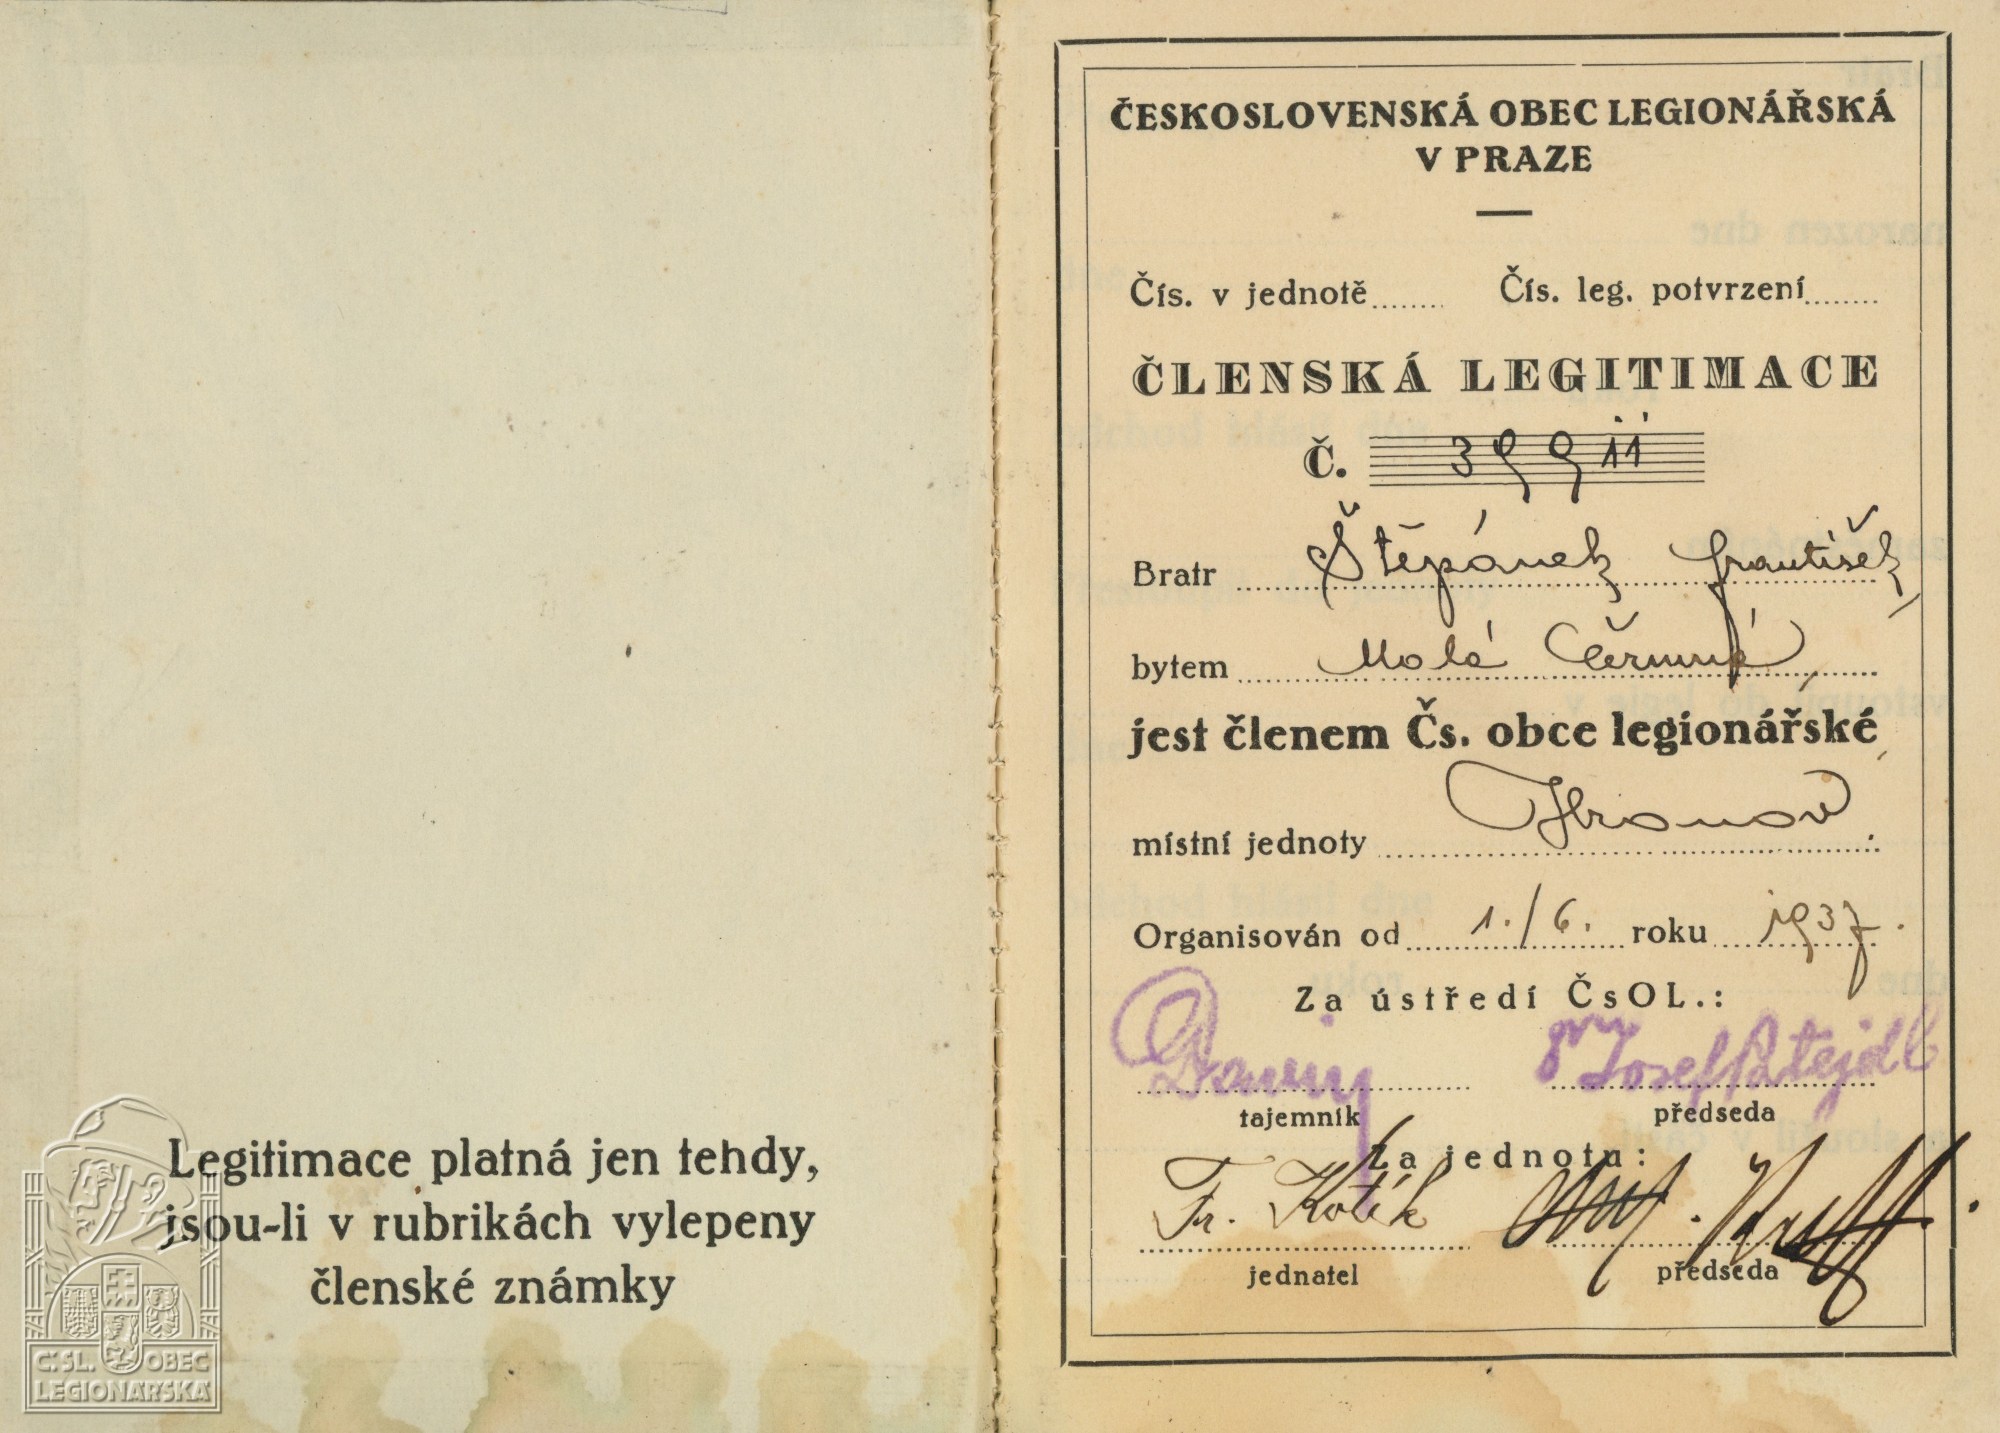 Legitimace platná jen tehdy,
jsou-li v rubrikách vylepeny
členské známky
Č:SL. OBEC
LEGIONÁŘSKÁ
ČESKOSLOVENSKÁ OBEC LEGIONÁŘSKÁ
V PRAZE
Čís. v jednotě........ Čís. leg. potvrzení........
ČLENSKÁ LEGITIMACE
Č. 39911
Bratr Štěpánek František,
bytem Malá Čermná,
jest členem Čs. obce legionářské
místní jednoty Hronov.
Organisován od 1./6. roku 1937.
Za ústředí ČsOL.:
Dr Josef Patejdl
tajemník předseda
Za jednotu:
Fr. Kotík
jednatel předseda